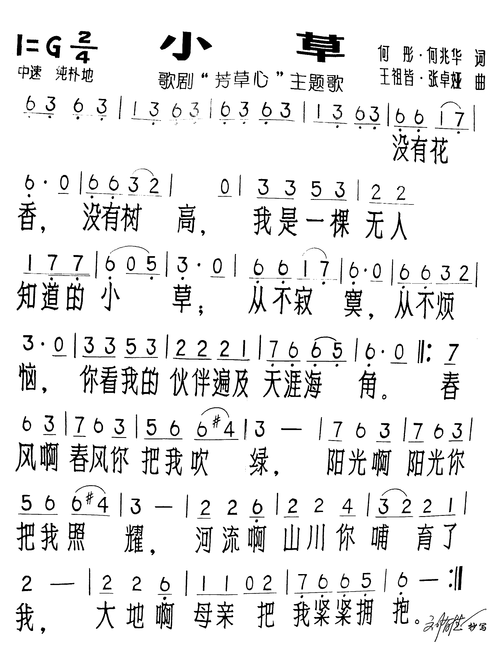 1=G 2/4 小 草 何彤·何兆华 词
中速 纯朴地 歌剧“芳草心”主题歌 王祖皆·张卓娅 曲
63 63 | 1363 | 1363 | 1363 | 1363 | 66 17 |
没有花
6·0 | 6632 | 0 | 3353 | 22
香， 没有树 高， 我是一棵 无人
| 177 | 605 | 3·0 | 6617 | 6·0 | 6632 |
知道的 小 草； 从不寂 寞，从不烦
3·0 | 3353 | 2221 | 7665 | 6·0 :| 7
恼， 你看我的 伙伴遍及 天涯海 角。 春
63 | 763 | 566#4 | 3 — | 763 | 763 |
风啊 春风你 把我吹 绿， 阳光啊 阳光你
566#4 | 3 — | 226 | 2204 | 3221 |
把我照 耀， 河流啊 山川你 哺 育了
2 — | 226 | 1102 | 7665 | 6 — :|
我， 大地啊 母亲 把 我紧紧拥 抱。
抄写